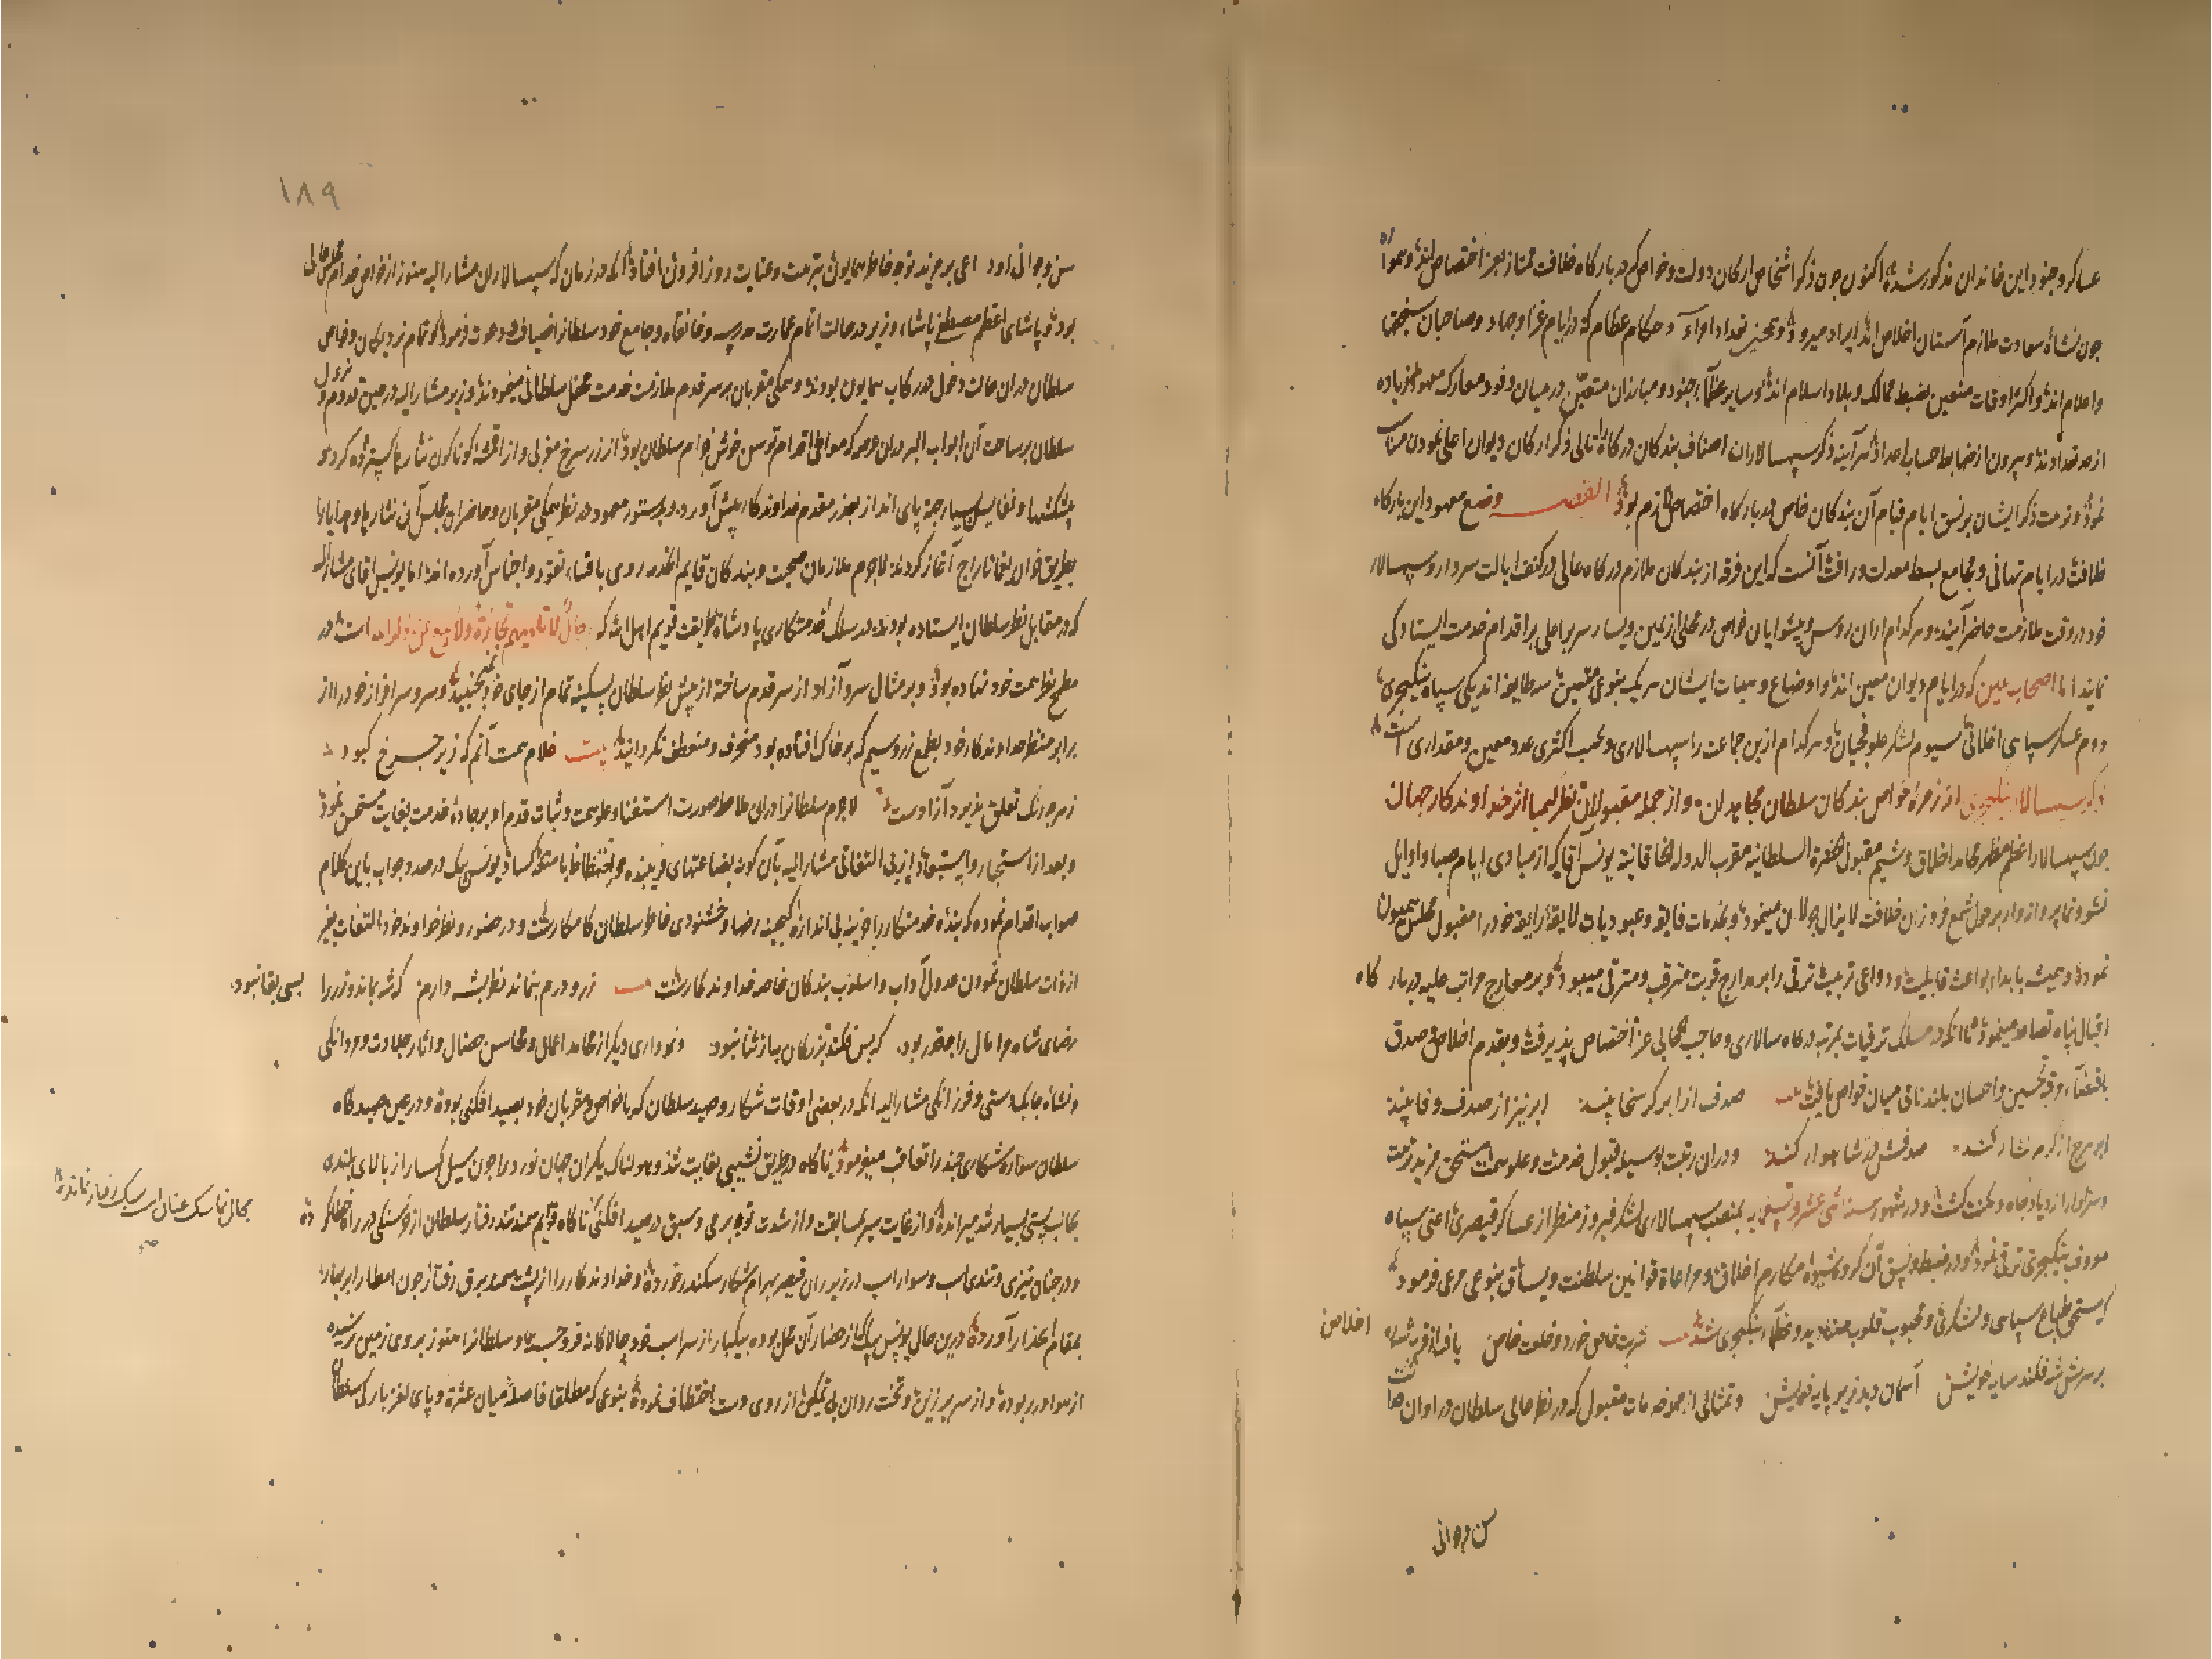 عساکر و جنود این خاندان مذکور شده اکنون چون ذکر اشخاص ارکان دولت و خواص که در بارکاه خلافت ممتاز بعز اختصاص اند و همواره
چون نشاءٔ سعادت ملازم آستان اخلاص اند ایراد میرود و تعداد امراء و حکام عظام که در ایام غزا و جهاد و صاحبان سنجقها
و اعلام اند و اکثر اوقات متعین بضبط ممالک و بلاد اسلام اند و سایر عظماء جنود و مبارزان متعین در میان وفود معارک
از حد تعداد اند و بیرون از ضابط حساب اعداد ذکر سپهسالاران اصناف بندکان درکاه تالی ذکر ارکان دیوان اعلی نمودن مناسب
نمود و نوبت ذکر ایشان بر نسق ایام قیام آن بندکان خاص در بارکاه اختصاص لازم بود القصه وضع معهود این بارکاه
خلافت در ایام تهانی و مجامع بسط معدلت و رافت آنست که این فرقه از بندکان ملازم درکاه عالی در کنف ایالت سردار و سپهسالار
خود در وقت ملازمت حاضر آیند و هر کدام ازان روس و پیشوایان خواص در محلی از یمین و یسار سریر اعلی بر اقدام خدمت ایستادکی
نمایند اما اصحاب یمین که در ایام دیوان معین اند و اوضاع و هیات ایشان هر یک بنوعی متعین سه طایفه اند یکی سپاه ینکیجری
دوم عسکر سپاهی اغلانی سیوم لشکر علوفجیان و هر کدام ازین جماعت را سپهسالاری و بحسب اکثری عدد معین و مقداری است
ذکر سپهسالار ینکیجری از زمره خواص بندکان سلطان مجاهدان و از جمله مقبولان نظر کیمیا اثر خداوندکار جهان
چون سپهسالار اعظم مظهر محامد اخلاق و شیم مقبول الحضرة السلطانیه مقرب الدوله الخاقانیه یونس آقا که از مبادی ایام صبا و اوایل
نشو و نما پروانه وار بر حول شمع فروزان خلافت لایزال جولان مینمود و بخدمات فایقه و عبودیات لایقه رایقه خود را مقبول مجلس همیون
نموده و همیشه بامداد بواعث قابلیت و دواعی تربیت ترقی را بر مدارج قربت مترقب و مترقی میبود و بر معارج مراتب علیه دربار کاه
اقبال پناه تصاعد مینمود تا آنکه در مسلک ترقیات بمرتبه درکاه سالاری و حاجب الحجابی عز اختصاص پذیرفت و بقدم اخلاص و صدق
باقتضاء وقت تحسین و احسان بلند نامی میان خواص یافت بیت صدف از ابر کر سخا بیند ابر نیز از صدف وفا بیند
ابر هرچ از کرم نثار کند صدفش در شاهوار کند و دران رتبت بوسیله قبول خدمت و علو همت مستحق مزید تربیت
و سزاوار ازدیاد جاه و مکنت کشت و در شهور سنه اثنی عشر و تسعمایه بمنصب سپهسالاری لشکر فیروز منظر از عساکر قیصری اعنی سپاه
معروف ینکیجری ترقی نمود و در ضبط و نسق آن کروه بشیوه مکارم اخلاق و مراعاة قوانین سلطنت و یساق بنوعی مرعی فرمود
که مستحق طباع سپاهی و لشکری و محبوب قلوب صنادید و عظماء ینکیجری شد بیت شربت خاص خورد و خلعت خاص یافت از قرب شه اخلاص
بر سرش شه فکند سایه خویش آسمان دید زیر پایه خویش و تمثالی از جمله خدمات مقبول که در نظر عالی سلطان در اوان حداثت
سن و جوانی
١٨٩
سن و جوانی او را داعی بر مزید توجه خاطر همایون بتربیت و عنایت روزافزون افتاد آنکه در زمان که سپهسالاران مشارالیه هنوز از خواص خدام مجلس عالی
بود و پاشای اعظم مصطفی پاشاء وزیر در حالت اتمام عمارت مدرسه و خانقاه و جامع خود سلطانرا ضیافت و دعوت فرمود و تمام نزدیکان و خاص
سلطان دران حالت دخول در رکاب همایون بودند و همکی مقربان بر سر قدم ملازمت خدمت محفل سلطانی مینمودند و وزیر مشارالیه در حین قدوم و نزول
سلطان بر ساحت آن ابواب البر دران عرصه که مواطی اقدام توسن خوش خرام سلطان بود از زر سرخ مغربی و از اقمشه کوناکون نثارها کسترده کرد و
پیشکشها و نفایس بسیار جهة پای انداز بعز مقدم خداوندکار پیش آورد و بدستور معهود در نظر همکی مقربان و حاضران مجلس آن نثارها و هدایا را
بطریق خوان یغما تاراج آغاز کردند لاجرم ملازمان صحبت و بندکان قایم الخدمه روی باقتناء نقود و اجناس آورده اند اما یونس آقای مشارالیه
که در مقابل نظر سلطان ایستاده بود و در سلک خدمتکاری پادشاه طریقت قویم اهل الله که رجال لا تلهیهم تجارة ولا بیع عن ذکر الله است در
مطمح نظر همت خود نهاده بود و بر مثال سرو آزاد از سر قدم ساخته از پیش نظر سلطان بسکینه تمام از جای خود نجنبید و سر و سرافراز خود را از
برابر منظر خداوندکار خود بطمع زر و سیم که بر خاک افتاده بود منحرف و منعطف نکردانید بیت غلام همت آنم که زیر چرخ کبود
ز هرچه رنک تعلق پذیرد آزاد است لاجرم سلطانرا دران ملاحظه صورت استغنا و علو همت و ثبات قدم او بر جاده خدمت بغایت مستحسن نمود
و بعد از استخبار و استبعاد از بی التفاتی مشارالیه بآن کونه بضاعتهای فریبنده یونس بیک در صدد جواب باین کلام
صواب اقدام نموده که بنده خدمتکار را خزینه بی اندازه کنجینه رضا و خشنودی خاطر سلطان کامکارست و در حضور و نظر خداوند خود التفات بغیر
از ذات سلطان نمودن عدول از آداب و اسلوب بندکان خاصه خداوندکارست بیت زر و درم بنماند نظر بشه دارم که شه بماند و زر را بسی بقا نبود
رضای شاه مرا مال را چه قدر بود که پس فکند بزرکان بباز ثنا نبود و نموداری دیکر از محامد اعمال و محاسن خصال و اثار جلادت و مردانکی
و نشاه چابک دستی و فرزانکی مشارالیه آنکه در بعضی اوقات شکار و صید سلطان که با خواص و مقربان خود بصید افکنی بوده و در عین صیدکاه
سلطان ستاره شکاری چند را تعاقب میفرمود ناکاه در طریق نشیبی بغایت تند و هولناک یکران جهان نورد را چون سیل کهسار از بالای بلندی
بجانب پستی بسیار تند میراند و از غایت سیر بمسابقت و از شدت توجه برمی و سبق در صید افکنی ناکاه قوایم سمند تند رفتار سلطان از فرسنکی در راه خطا کرده مجال تماسک عنان اسب سبک رفتار نمانده صح
و در چنان تیزی و تندی اسب و سوار اسب در زیر ران قیصر بهرام شکار سکندر خورده و خداوندکار را از پشت سمند برق رفتار چون امطار ابر بهار
بمقام انحدار آورده درین حال یونس بیک از حضار آن محل بوده بیکبار از سر اسب خود چالاکانه فرو جسته و سلطانرا هنوز بروی زمین نرسیده
از هوا در ربوده و از سریر زین و تخت روان بی تمکین از روی دست اختطاف نموده بنوعی که مطلقا فاصله میان عثره و پای لغز بارکی سلطان